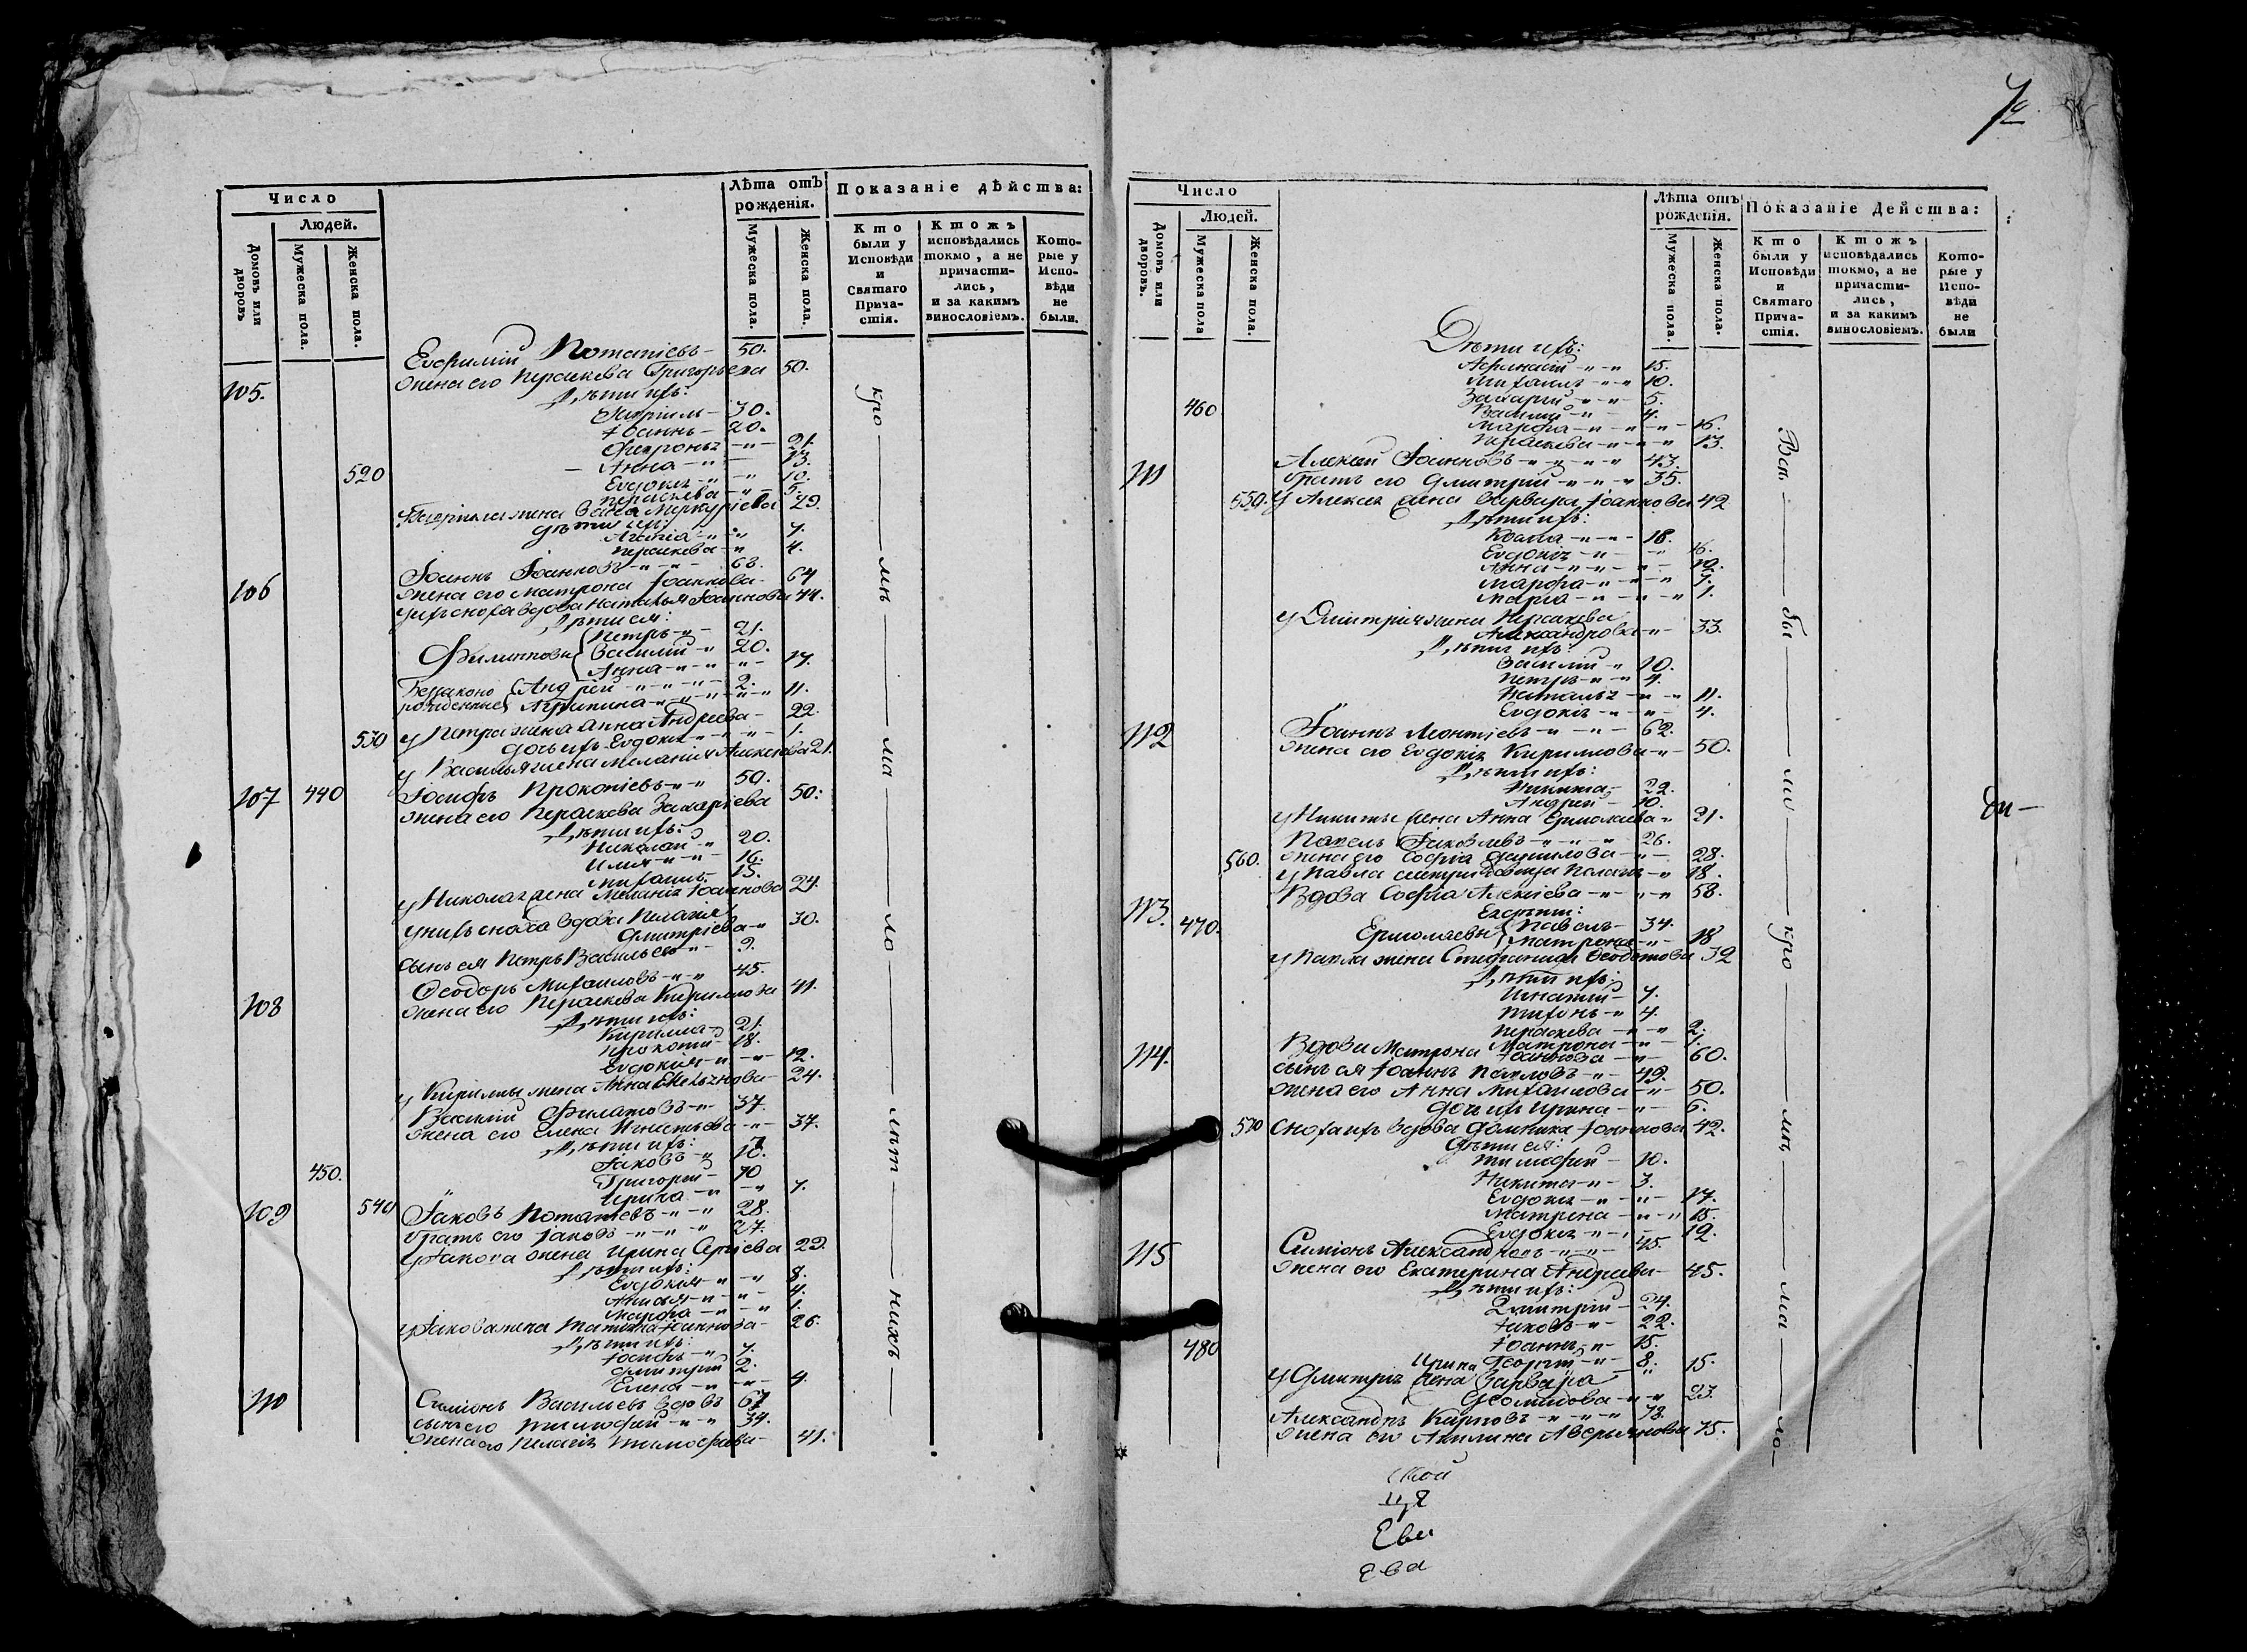 Число
Людей.
Домовъ или дворовъ
Мужеска пола.
Женска пола.
Лѣта отъ рожденія.
Мужеска пола.
Женска пола.
Показаніе дѣйства:
Кто были у Исповѣди и Святаго Причастія.
Ктожъ исповѣдались токмо, а не причастились, и за какимъ винословіемъ.
Которые у Исповѣди не были.
105. Евфимій Потапіевъ 50.
жена его Параскева Григорьева 50.
Дѣти ихъ:
30.
Іоаннъ 20.
21.
Анна 13.
520 Евдокія 10.
Параскева 5.
жена Васса Меркуріева 29.
дѣти ихъ:
7.
Параскева 4.
106 Іоаннъ Іоанновъ 63.
жена его Матрона Іоаннова 64
у ихъ сноха вдова Наталья Іоаннова 44.
Дѣти ея:
Петръ 21.
Филиппова Василій 20.
Анна 17.
Беззаконо Андрей 2.
рожденные Агрипина 11.
у Петра жена Анна Андреева 22.
530 дочь ихъ Евдокія 1.
у Василья жена Меланія Алексѣева 21.
107 440 Іосифъ Прокопіевъ 50.
жена его Параскева Захаріева 50:
Дѣти ихъ:
Николай 20.
Илья 16.
Михаилъ 15.
у Николая жена Меланія Іоаннова 24.
у нихъ сноха вдова Пелагія
Дмитріева 30.
сынъ ея Петръ Васильевъ 9.
108 Ѳеодоръ Михаиловъ 45.
жена его Параскева Кириллова 41.
Дѣти ихъ:
Кирилла 21.
Прокопій 18.
Евдокія 12.
у Кириллы жена Анна 24.
Василій Филатовъ 37.
жена его Елена Игнатьева 37.
Дѣти ихъ:
Іаковъ 10.
450. Григорій 10
Ирина 7.
109 540 Іаковъ Потапіевъ 28.
братъ его Іаковъ 27.
у Іакова жена Ирина Сергіева 29.
Дѣти ихъ:
Евдокія 8.
4.
Марфа 1.
у Іакова жена Татіана Іоаннова 26.
Дѣти ихъ:
Іосифъ 7.
Дмитрій 2.
Елена 4.
110 Симіонъ Васильевъ вдовъ 67
сынъ его Тимофей 34.
жена его Пелагія Тимофеева 41.
кро мѣ ма ло лѣт нихъ
Число
Людей.
Домовъ или дворовъ.
Мужеска пола
Женска пола.
Лѣта отъ рожденія.
Мужеска пола.
Женска пола.
Показаніе Действа:
Кто были у Исповѣди и Святаго Причастія.
Ктожъ исповѣдались токмо, а не причастились, и за какимъ винословіемъ.
Которые у Исповѣди не были
Дѣти ихъ:
Афанасій 15.
Михаилъ 10.
Захарій 5.
460 Василій 4.
Марфа 16.
Параскева 13.
111 Алексѣй Іоанновъ 43.
братъ его Дмитрій 35.
550. у Алексѣя жена Варвара Іоаннова 42
Дѣти ихъ:
18.
Евдокія 16.
Анна 12.
Марфа 7.
Марія 1.
у Дмитрія жена Параскева
Александрова 33.
Дѣти ихъ:
Василій 10.
Петръ 4.
Наталія 11.
Евдокія 4.
112 Іоаннъ Леонтіевъ 62.
жена его Евдокія Кириллова 50.
Дѣти ихъ:
Никита 22.
Андрей 10.
у Никиты жена Анна Ермолаева 21.
Павелъ Іаковлевъ 26.
560. жена его Софія Данилова 28.
у Павла сестра девица Пелагія 18.
113. Вдова Софіа Алексіева 58.
Ея дѣти:
470. Ермолаевы Павелъ 34.
Матрона 18
у Павла жена Стефанида Ѳеодотова 32
Дѣти ихъ:
Игнатій 7.
Тихонъ 4.
Параскева 2.
Матрона 1.
114. Вдова Матрона Іоаннова 60.
сынъ ея Іоаннъ Павловъ 49.
жена его Анна Михаилова 50.
дочь ихъ Ирина 6.
570 Сноха ихъ вдова Домника Іоаннова 42.
Дѣти ея:
Тимофей 10.
Никита 3.
Евдокія 17.
Матрена 15.
Евдокія 12.
115 Симіонъ Александровъ 45.
жена его Екатерина Андреева 45.
Дѣти ихъ:
Дмитрій 24.
Іаковъ 22.
Іоаннъ 15.
480 Георгій 8.
Ирина 15.
у Дмитрія жена Варвара
23.
Александръ Карповъ 73.
жена его Акилина Аверьянова 75.
Всѣ бы ли кро мѣ ма ло
ской
ця
Ева
Ева